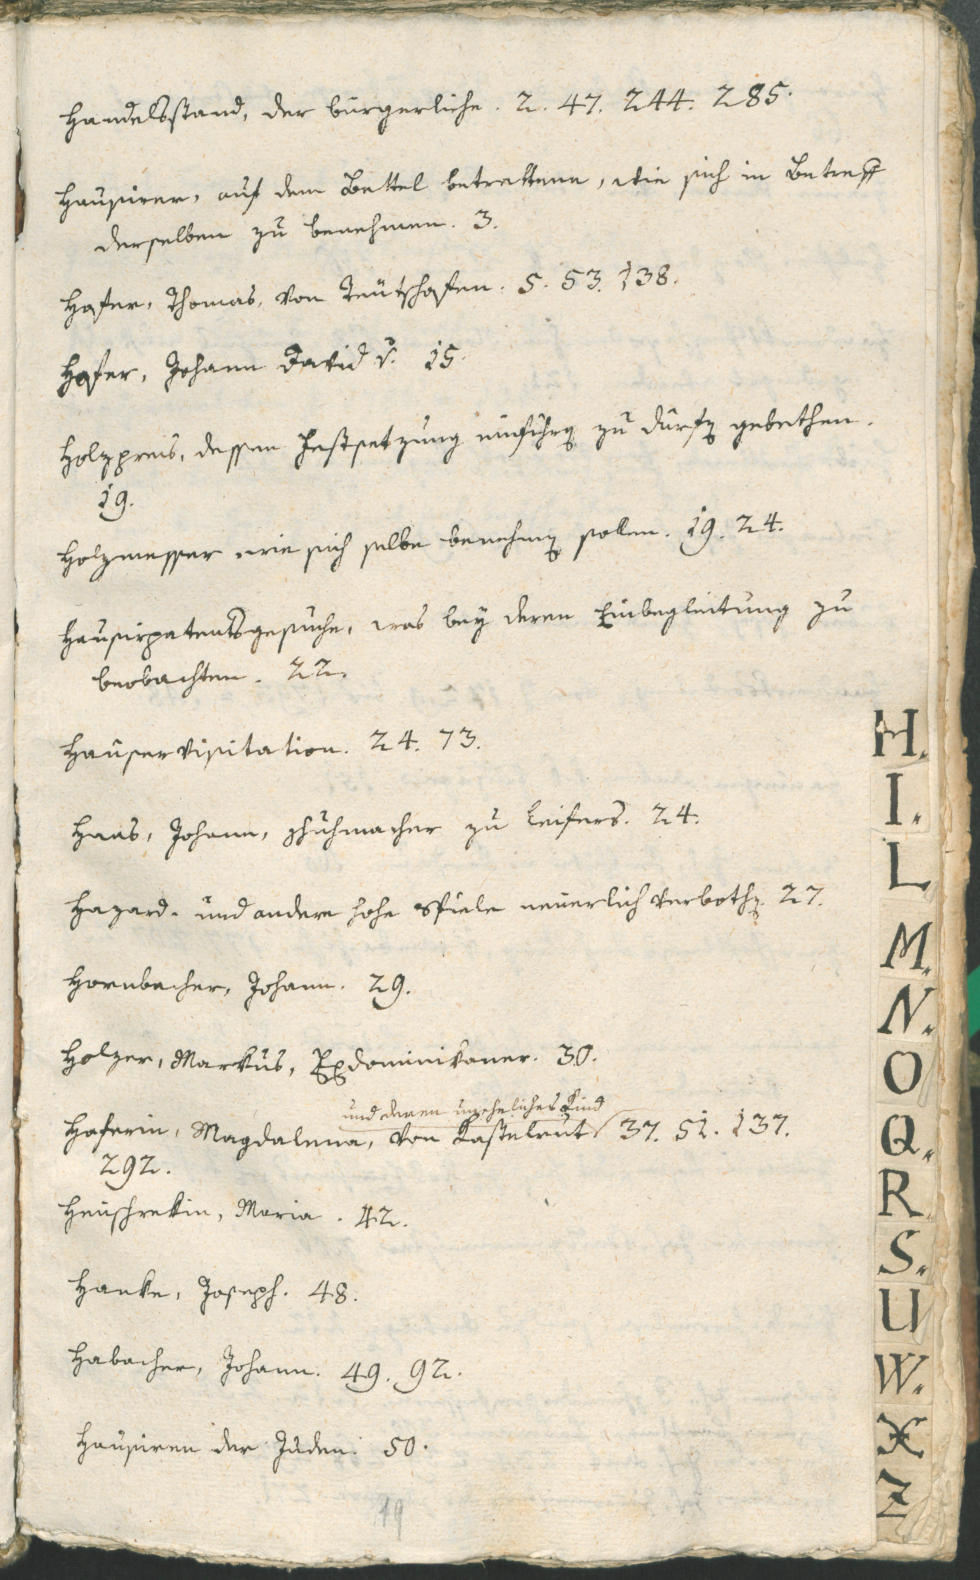 Handelsstand, der bürgerliche. 2. 47. 244. 285.
Hausirer, auf dem Bettel betrettene, wie sich in Betreff
derselben zu benehmen. 3.
Hofer, Thomas, von Teutschofen. 5. 53. 138.
Hofer, Johann David v. 15.
Holzpreis, dessen Festsetzung einführen zu dürfen gebethen.
19.
Holzmesser wie sich selbe benehmen sollen. 19. 24.
Hausirpatentsgesuche, was bey deren Einbegleitung zu
beobachten. 22.
Hauservisitation. 24. 73.
Haas, Johann, Schuhmacher zu Leifers. 24.
Hazard- und andere hohe Spiele neuerlich verbothen. 27.
Hornbacher, Johann. 29.
Holzer, Markus, Exdominikaner. 30.
und deren uneheliches Kind
Hoferin, Magdalena, von Kastelrut 37. 51. 137.
292.
Heuschrekin, Maria. 42.
Hanke, Joseph. 48.
Habacher, Johann. 49. 92.
Hausiren der Juden. 50.
19
H.
I.
L
M.
N.
O
Q.
R
S.
U
W.
X
Z